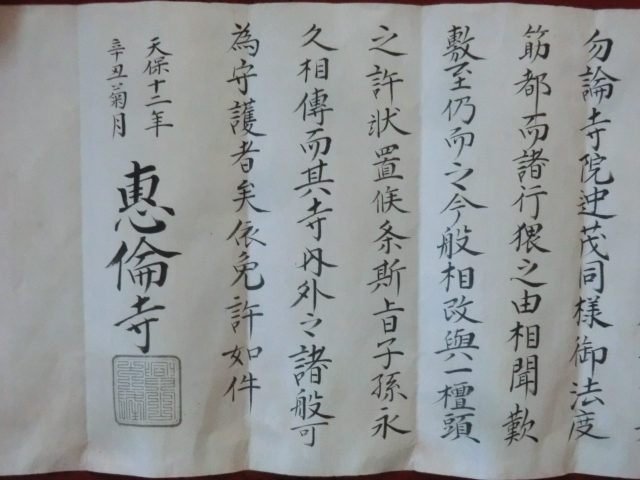 勿論寺院迚茂同様御法度
筋都而諸行猥之由相聞歎
敷至仍而之今般相改與一檀頭
之許状置候条斯旨子孫永
久相傳而其寺内外之諸般可
為守護者矣依免許如件
天保十二年
辛丑菊月
惠倫寺